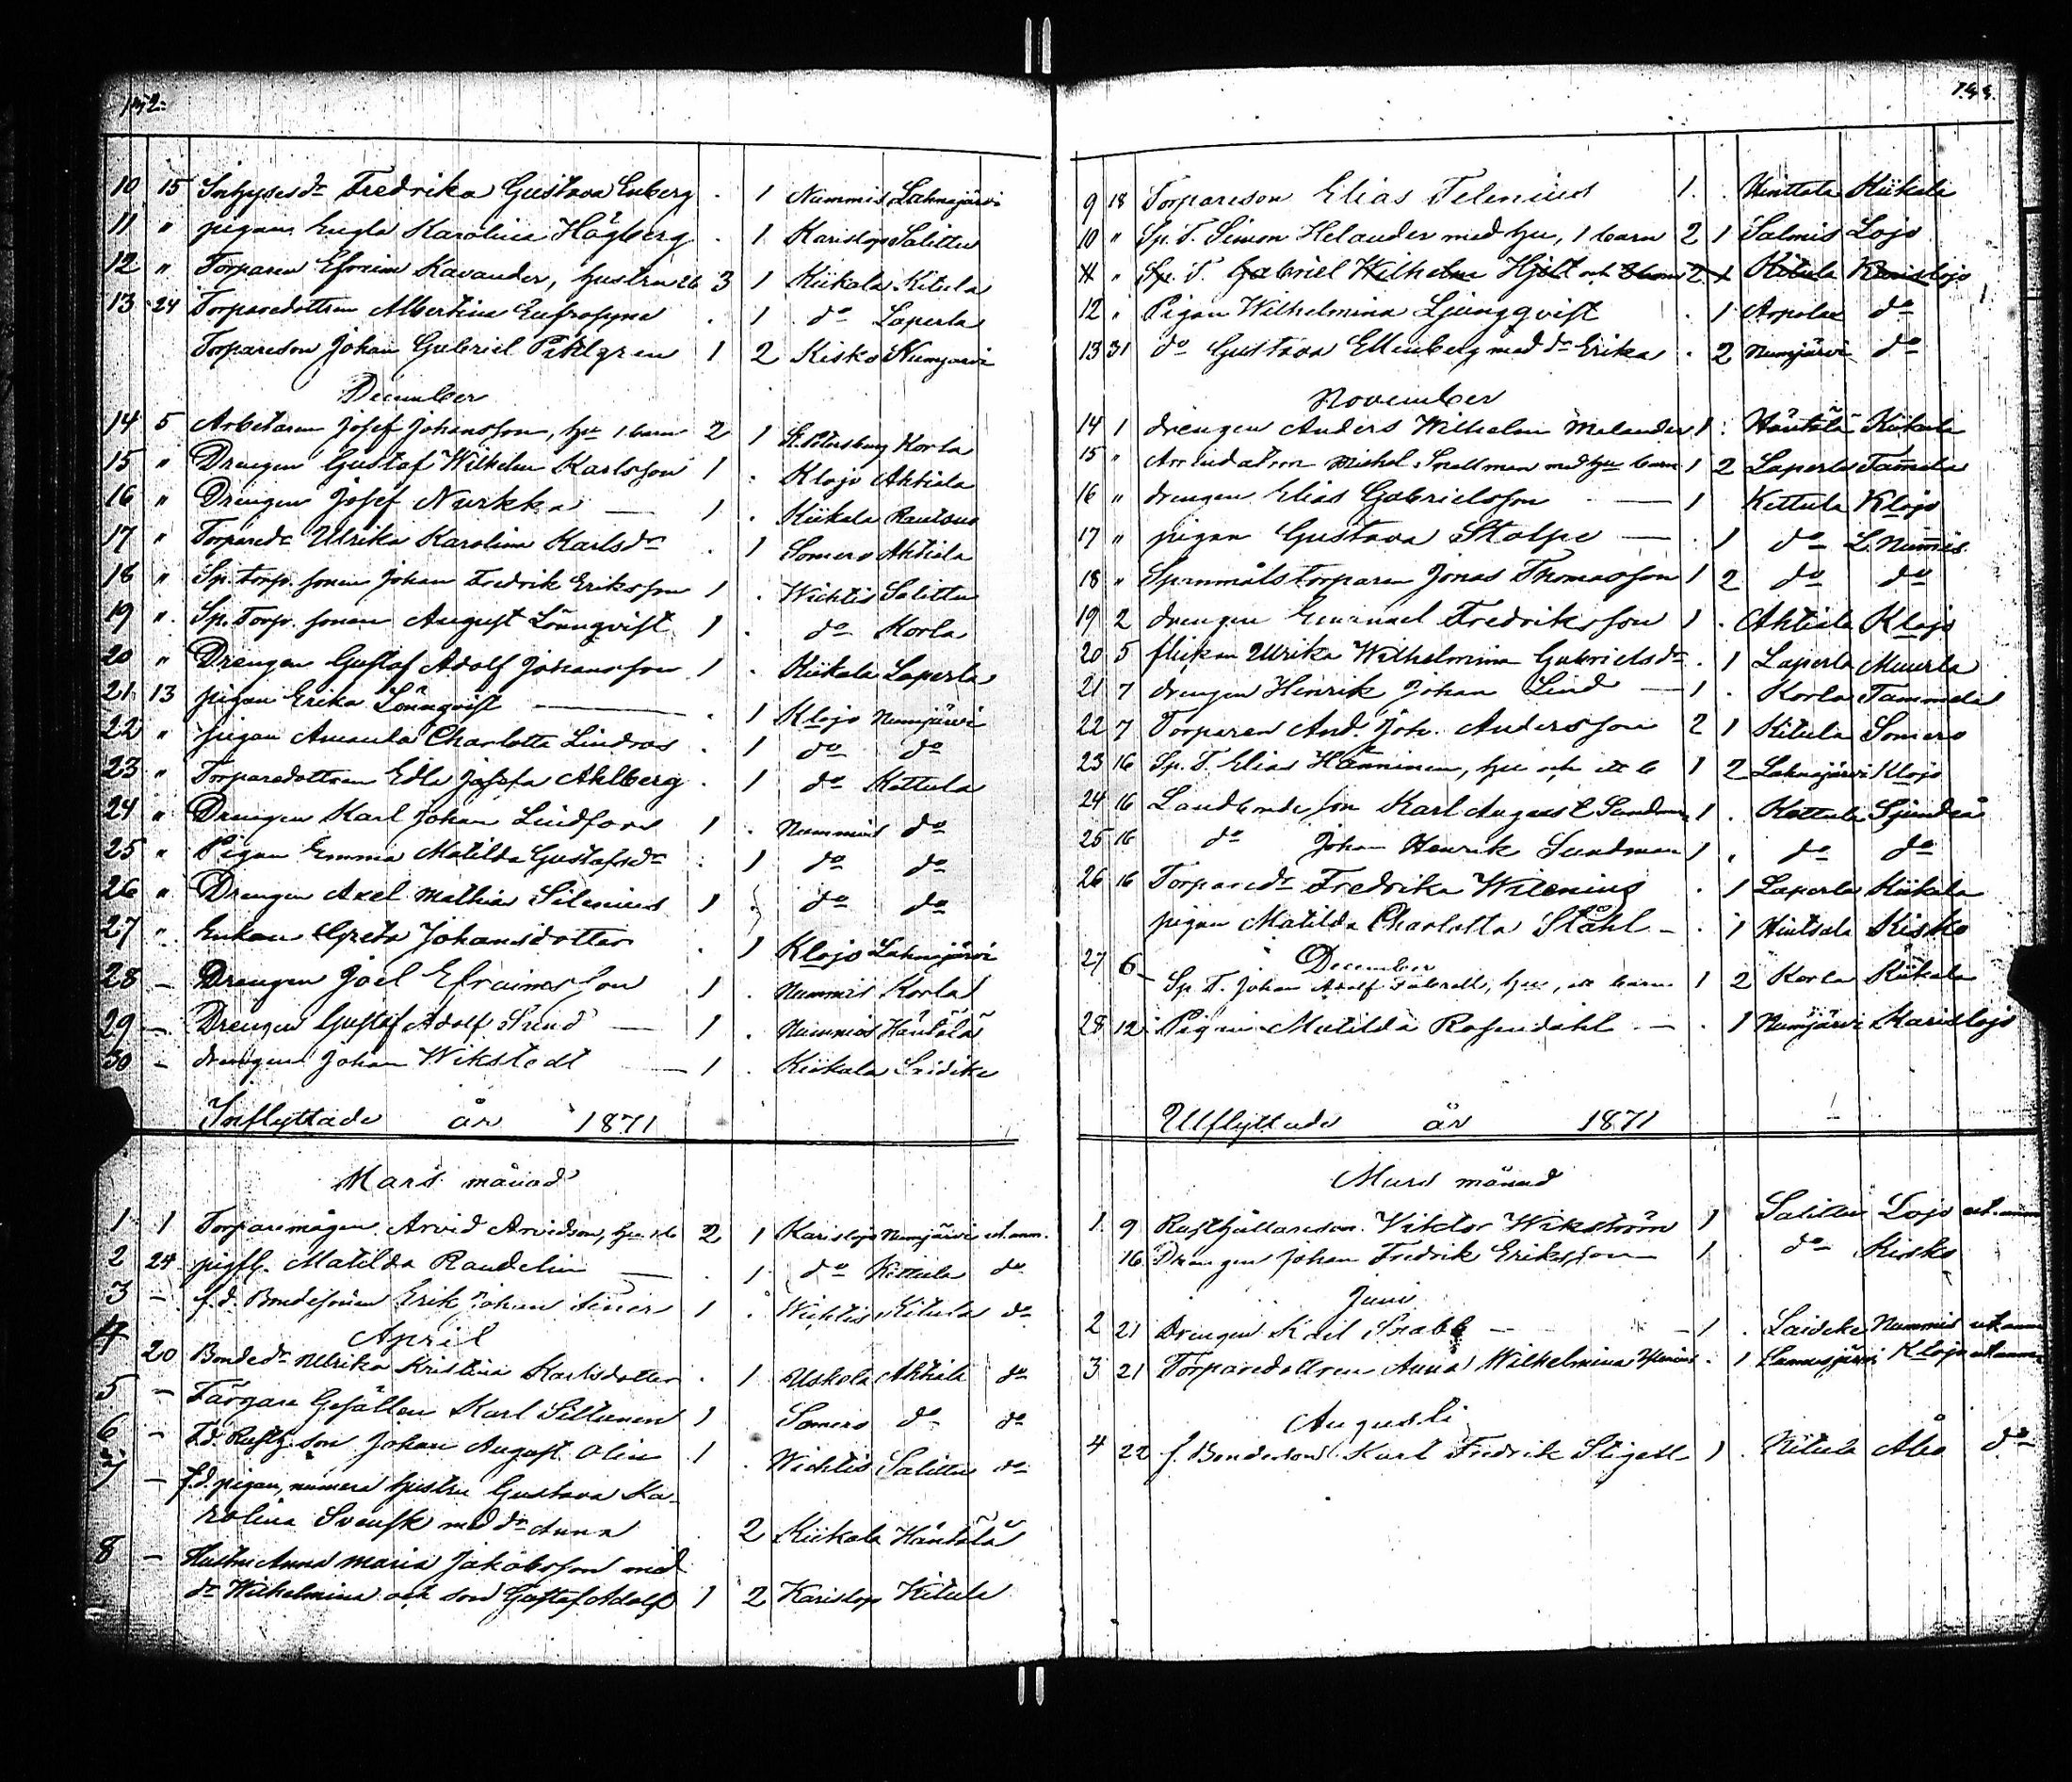 152.
10 15 Inhyses dr Fredrika Gustava Enberg . 1 Nummis Lahnajärvi
11 " pigan Engla Karolina Högberg . 1 Karislojo Salittu
12 " Torparen Efraim Kavander, hustru 2b 3 1 Kiikala Kitula
13 24 Torparedottren Albertina Eufrosyna . 1 do Laperla
Torpareson Johan Gabriel Pihlgren 1 2 Kisko Numjärvi
December
14 5 Arbetaren Josef Johansson, hu 1 barn 2 1 St. Petersburg Korla
15 " Drengen Gustaf Wilhelm Karlsson 1 . Klojo Ahtiala
16 " Drengen Josef Nurkka — 1 . Kiikala Rautsuo
17 " Torparedr Ulrika Karolina Karlsdr . 1 Somero Ahtiala
18 " Sp. torp. sonen Johan Fredrik Eriksson 1 . Wichtis Salittu
19 " Sp. Torp. sonen August Lönnqvist 1 . do Korla
20 " Drengen Gustaf Adolf Johansson 1 . Kiikala Laperla
21 13 pigan Erika Lönnqvist — . 1 Klojo Numjärvi
22 " pigan Amanda Charlotta Lindroos . 1 do do
23 " Torparedottren Edla Josefa Ahlberg . 1 do Kettula
24 " Drengen Karl Johan Lindfors 1 . Nummis do
25 " Pigan Emma Matilda Gustafsdr . 1 do do
26 " Drengen Axel Mathias Silenius 1 . do do
27 " Enkan Greta Johansdotter . 1 Klojo Lahnajärvi
28 – Drengen Joel Efraimsson 1 . Nummis Korla
29 – Drengen Gustaf Adolf Sund — 1 . Nummis Häntälä
30 – drengen Johan Wikstedt — 1 . Kiikala Saideke
Inflyttade år 1871
Mars månad
1 1 Torparemågen Arvid Arvidson, hu 1 b 2 1 Karislojo Numjärvi
2 24 pigfl. Matilda Randelin — . 1 do Kettula do
3 – f.d. Bondesonen Erik Johan 1 . Wichtis Kitula do
4 April
20 Bondedr Ulrika Kristina Karlsdotter . 1 Uskela Ahtiala do
5 – Färgare Gesällen Karl Siltanen 1 Somero do do
6 – F.d. Rusth. son Johan August Olin 1 . Wichtis Salittu do
7 – f.d. pigan, numera hustru Gustava Ka-
rolina Svensk med dr Anna 2 Kiikala Häntälä
8 – Hustru Anna Maria Jakobsson med
dr Wilhelmina och son Gustaf Adolf 1 2 Karislojo Kitula
9 18 Torpareson Elias Telenius 1 . Hinttala Kiikala
10 " Sp. T. Simon Helander med hu, 1 barn 2 1 Salmis Lojo
11 " Sp. T. Gabriel Wilhelm Hjelt och 2 1 Kitula Karislojo
12 " Pigan Wilhelmina Ljungqvist . 1 Arpalae do
13 31 do Gustava Ellenberg med dr Erika . 2 Numjärvi do
November
14 1 drengen Anders Wilhelm Melander 1 . Häntälä Kiikala
15 " Arrendatorn Michel Snellman med hu barn 1 2 Laperla Tammela
16 " drengen Elias Gabrielsson — 1 Kettula Klojo
17 " pigan Gustava Stolpe — . 1 do L. Nummis
18 " Spannmåls Torparen Jonas Thomasson 1 2 do do
19 2 drengen Emanuel Fredriksson 1 . Ahtiala Klojo
20 5 flickan Ulrika Wilhelmina Gabrielsdr . 1 Laperla Muurla
21 7 drengen Henrik Johan Lind — 1 . Korla Tammela
22 7 Torparen And. Joh. Andersson 2 1 Kitula Somero
23 16 Sp. T. Elias Hänninen, hu och ett b 1 2 Lahnajärvi Klojo
24 16 Landbonde son Karl August Sundman 1 . Kettula Sjundeå
25 16 do Johan Henrik Sundman 1 . do do
26 16 Torparedr Fredrika Wilenius . 1 Laperla Kiikala
pigan Matilda Charlotta Ståhl – . 1 Hintsala Kisko
December
27 6 Sp. T. Johan Adolf hu, ett barn 1 2 Korla Kiikala
28 12 Pigan Matilda Rosendahl — . 1 Numjärvi Karislojo
Utflyttade år 1871
Mars månad
1 9 Rusthållareson Viktor Wikström 1 Salittu Lojo
16 Drengen Johan Fredrik Eriksson — 1 do Kisko
Juni
2 21 Drengen Karl Snabb — 1 . Saideke Nummis
3 21 Torparedottren Anna Wilhelmina . 1 Klojo
Augusti
4 22 f. Bondeson Karl Fredrik Stigell 1 . Kitula Åbo do